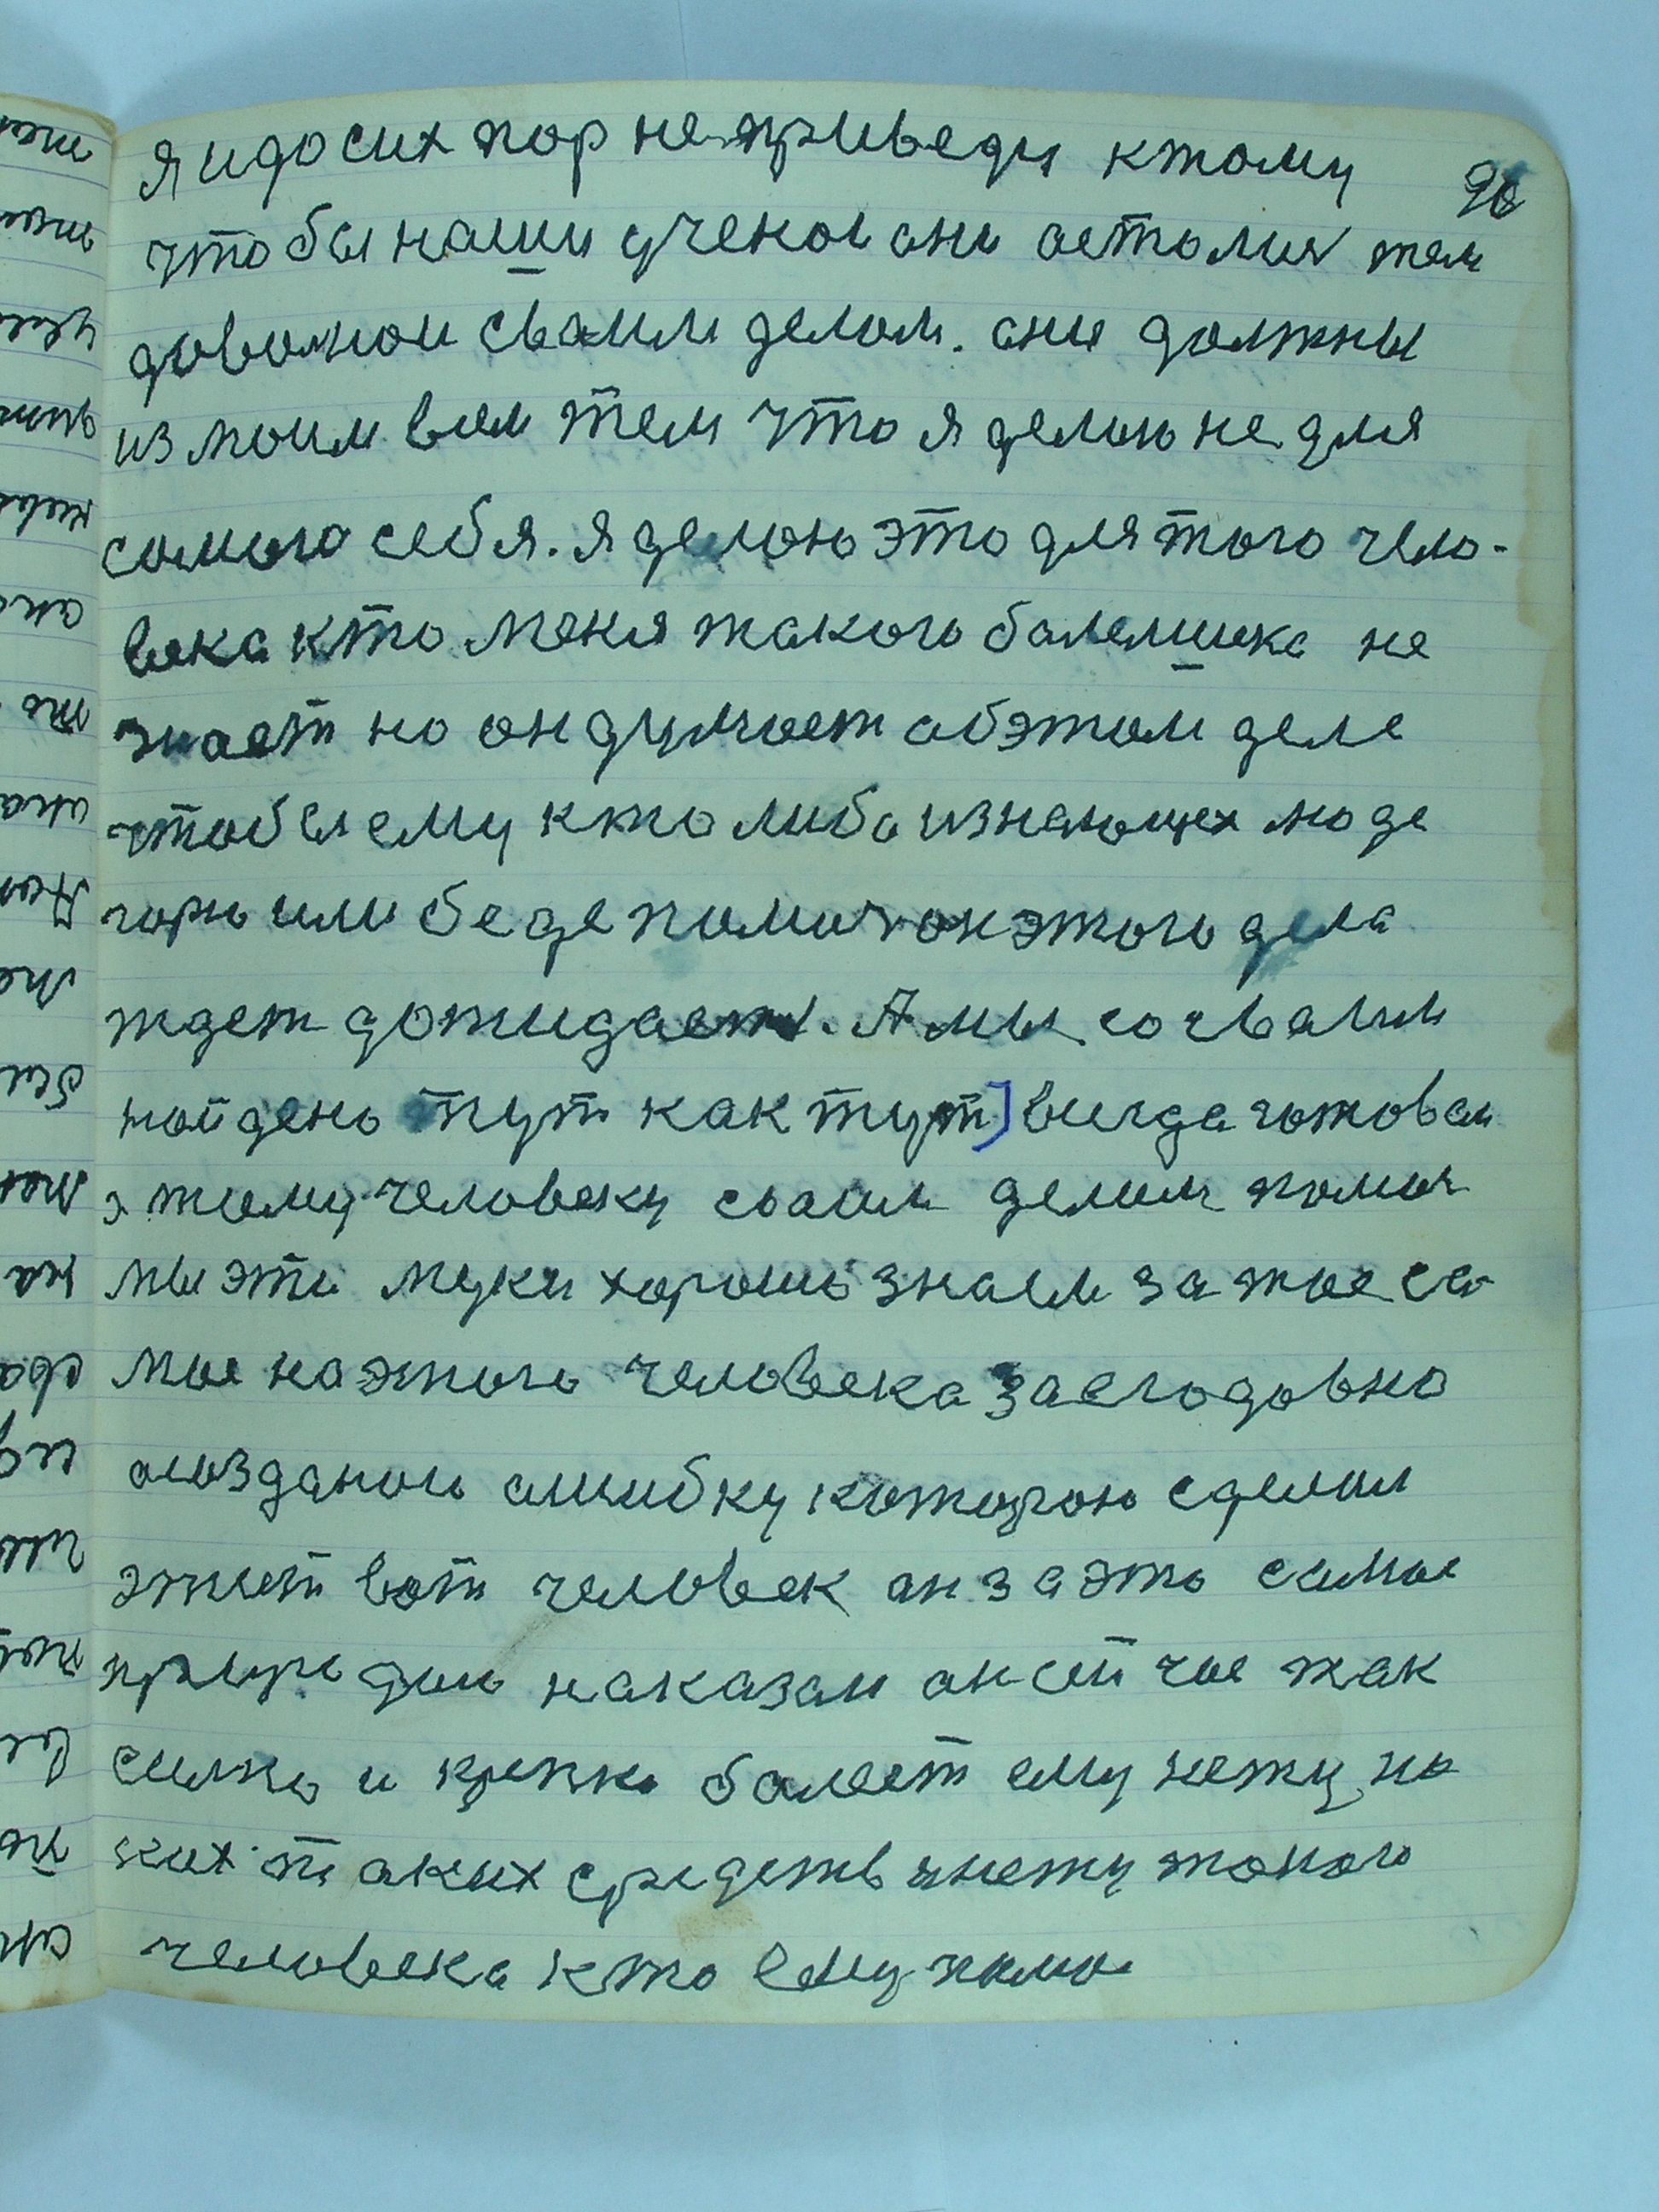 96
я идо сих пор не приведи ктому
что бы наши ученои они астолия тем
довольнои сваим делом. они должны
из моим вем тем что я делаю не для
самого себя. я делаю это для того чело-
века кто меня такого балельшека не
знает но он думоет обэтом деле
чтобы ему кто либо изнающех люде
горю или беде помоч он этого дела
ждет дожидает. А мы со сваим
найдено тут как тут] всегда готовы
этому человеку сваим делом помоч
мы эти муки хорошо знаем за тое са
мое на этого человека за его довно
созданои ошибку которою сделал
этот вот человек он за это самое
природои наказан он сейчас так
силно и крепко балеет ему нету ни
ких таких средств и нету такого
человека кто ему помо